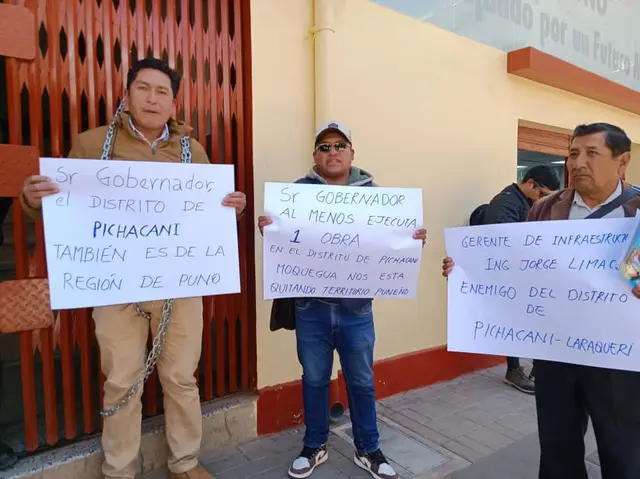 NO
ando por un Futuro
Sr Gobernador,
el DISTRITO DE
PICHACANI
TAMBIÉN ES DE LA
REGIÓN DE PUNO
Sr. GOBERNADOR
AL MENOS EJECUTA
1 OBRA
EN EL DISTRITO DE PICHACANI
MOQUEGUA NOS ESTA
QUITANDO TERRITORIO PUNEÑO
GERENTE DE INFRAESTRUC
ING JORGE LIMAC
ENEMIGO DEL DISTRITO
DE
PICHACANI-LARAQUERI